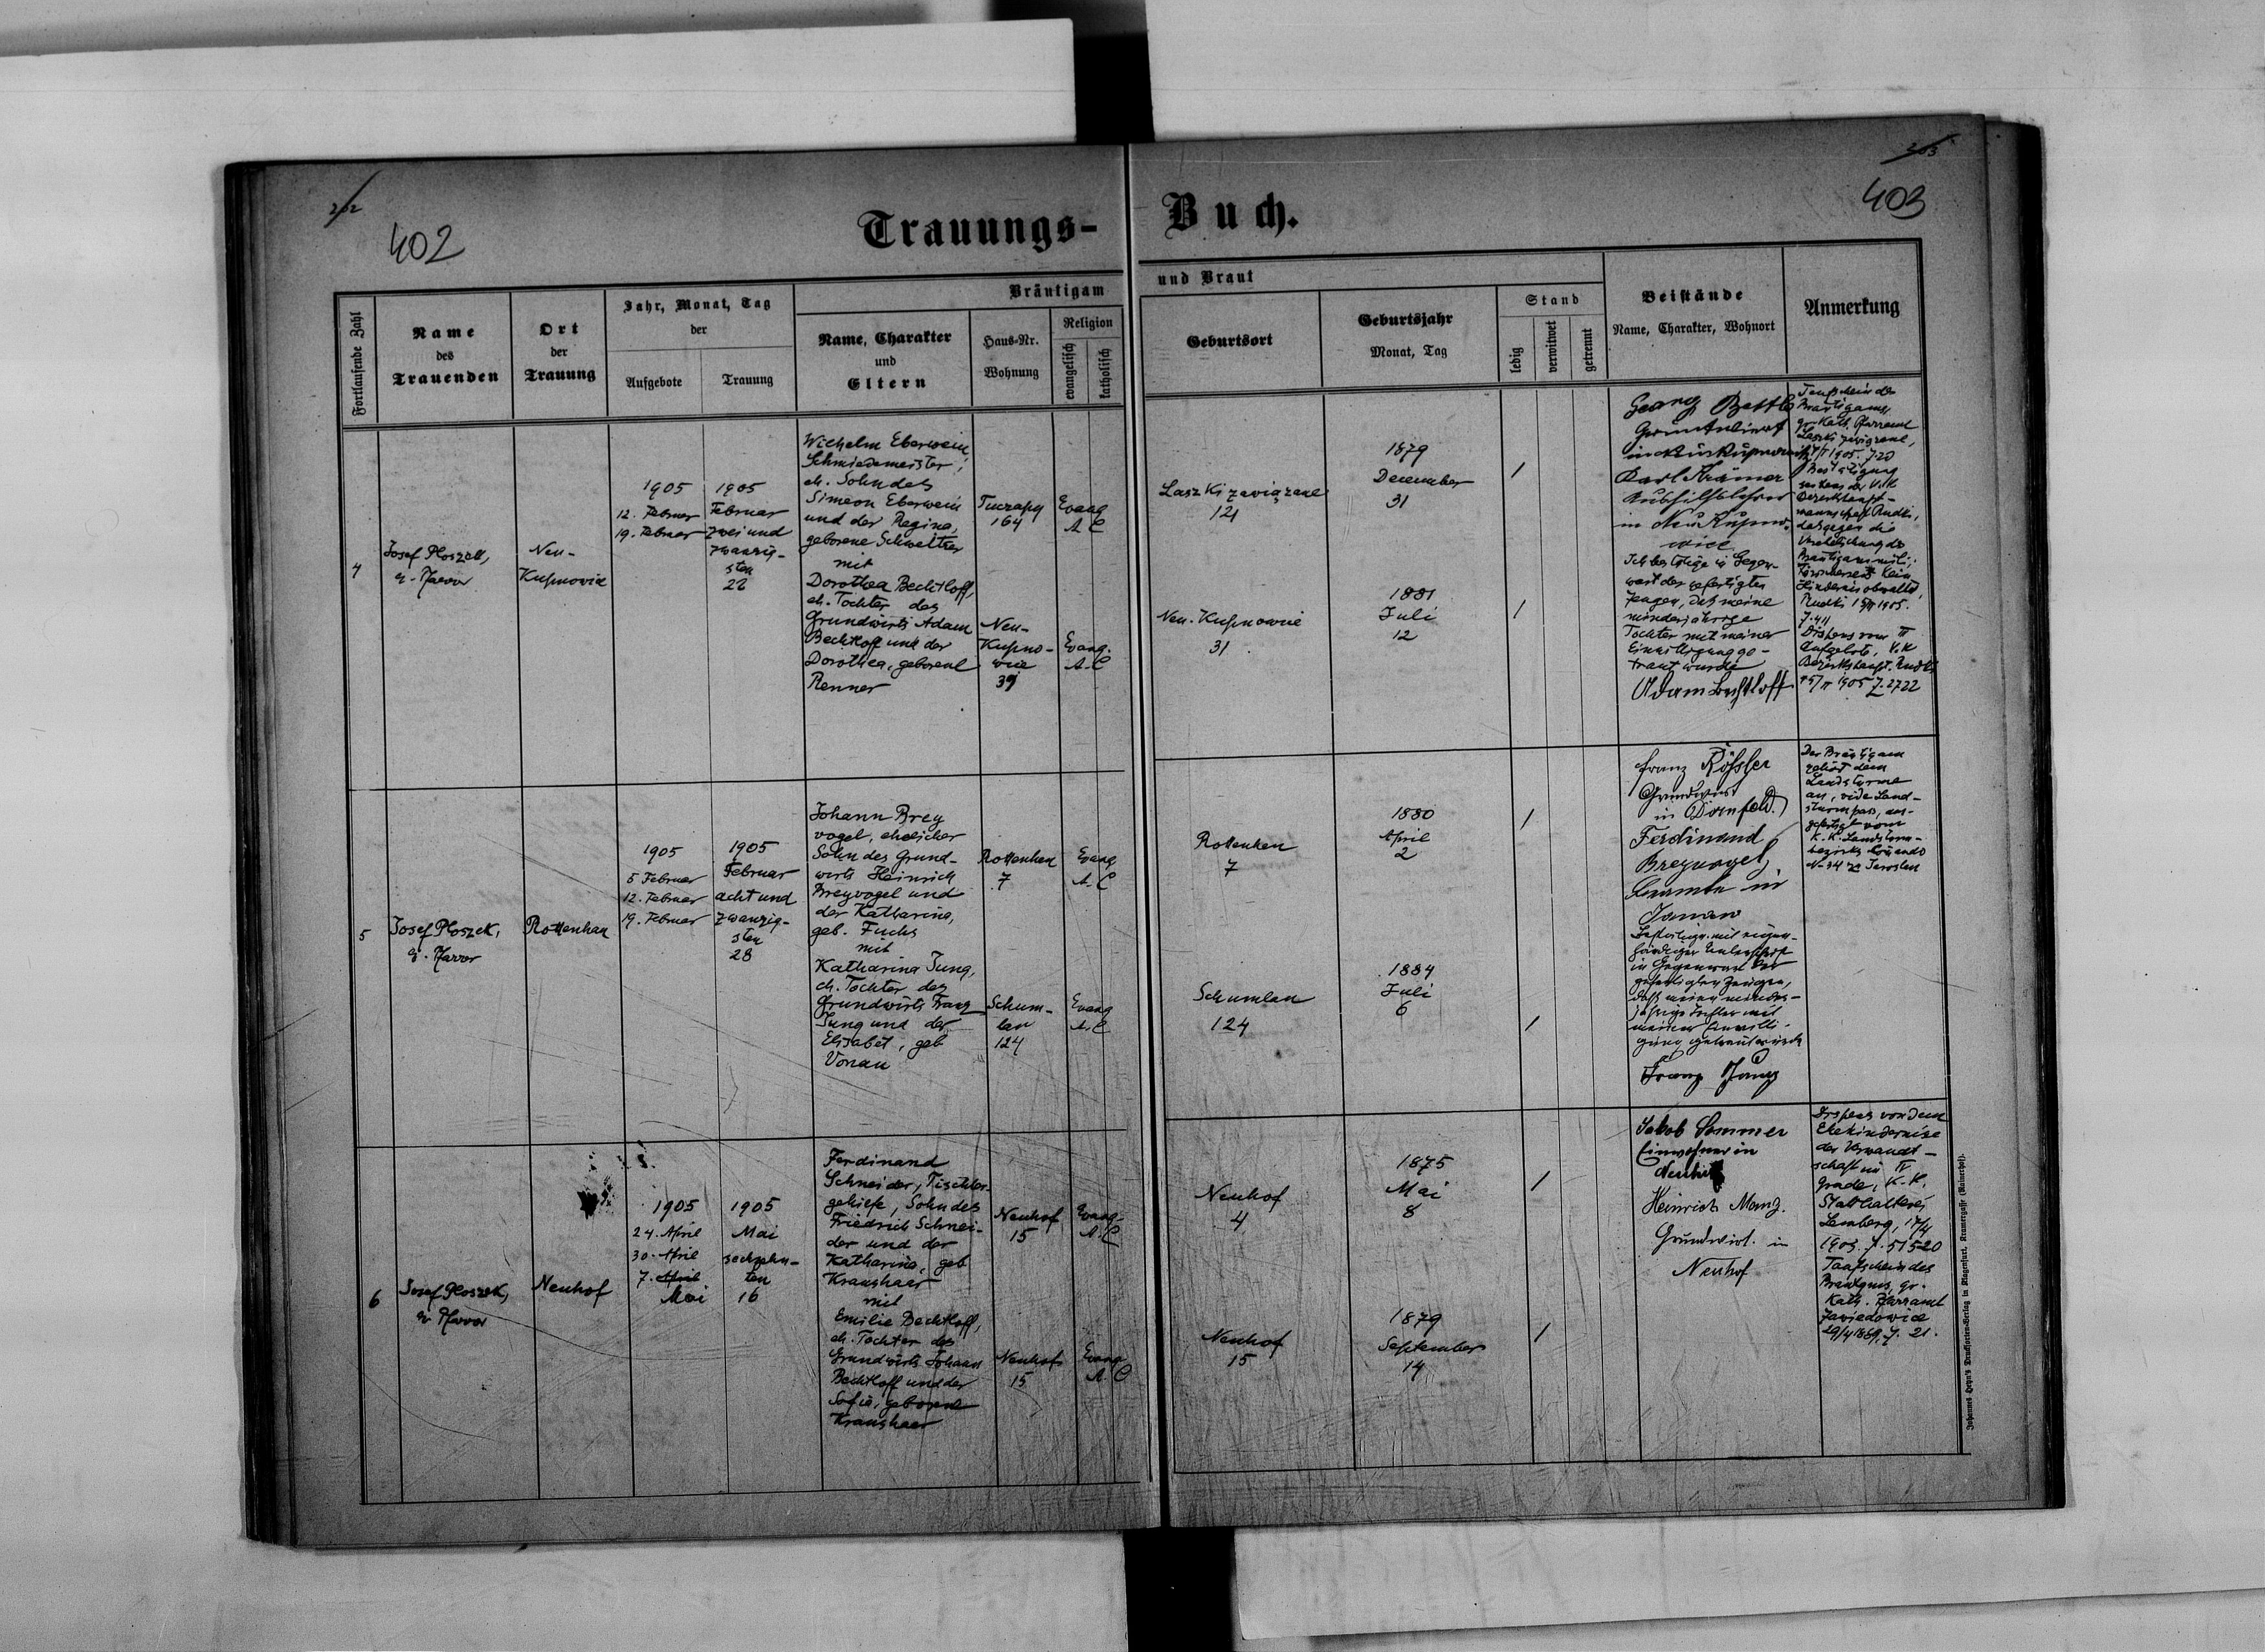 202
402
Trauungs-
Buch.
203
403
Fortlaufende Zahl
Name
des
Trauenden
Ort
der
Trauung
Jahr, Monat, Tag
der
Aufgebote
Trauung
Bräutigam
Name, Charakter
und
Eltern
Haus-Nr.
Wohnung
Religion
evangelisch
katholisch
und Braut
Geburtsort
Geburtsjahr
Monat, Tag
Stand
ledig
verwitwet
getrennt
Beistände
Name, Charakter, Wohnort
Anmerkung
4
Josef Ploszek,
ev. Pfarrer
Neu-
Kupnovice
1905
12. Februar
19. Februar
1905
Februar
zwei und
zwanzig-
sten
22
Wilhelm Eberwein,
Schmiedemeister,
eh. Sohn des
Simeon Eberwein
und der Regina,
geborene Schweitzer
mit
Dorothea Bechtloff,
eh. Tochter des
Grundwirts Adam
Bechtloff und der
Dorothea, geborene
Renner
164
Evang
A C
Neu-
Kupno-
wice
Evang.
A. C
Laszki zawiązane
121
Neu-Kupnowice
31
1879
December
31
1881
Juli
12
Georg
Karl Krämer
in Neu Kupno-
wice
Ich bestätige in Gegen-
wart der gefertigten
Zeugen, daß meine
minderjährige
Tochter mit meiner
Einwilligung ge-
traut wurde
Adam Bechtloff
Taufschein des
Bräutigams,
gr. Kath. Pfarramt
Laszki zawiązane,
1905. Z. 20
Bestätigung
seitens der k.k
Bezirkshaupt-
mannschaft Rudki,
das gegen die
Verehelichung des
Bräutigams
kein
Hindernis obwaltet,
Rudki 1905.
Z. 411
Dispens vom II
Aufgebote, k.k
Bezirkshaupt. Rudki
1905 Z. 2722
5
Josef Ploszek,
ev. Pfarrer
Rottenhan
1905
5 Februar
12. Februar
19. Februar
1905
Februar
acht und
zwanzig-
sten
28
Johann Brey
vogel, ehelicher
Sohn des Grund-
wirts Heinrich
Breyvogel und
der Katharina,
geb. Fuchs
mit
Katharina Jung,
eh. Tochter des
Grundwirts Franz
Jung und der
Elisabet, geb
Vonau
Rottenhan
7
Evang
A. C
Schum-
lau
124
Evang
A. C
Rottenhan
7
Schumlau
124
1880
April
2
1884
Juli
6
Franz Rößler
Grundwirt
in Dornfeld.
Ferdinand
Breyvogel,
Beamte in
Janow
Bestätige mit eigen-
händiger Unterschrift
in Gegenwart der
gefertigten Zeugen,
daß meine minder-
jährige Tochter mit
meiner Einwilli-
gung getraut wurde
Franz Jung
Der Bräutigam
gehört dem
Landsturme
an, vide Land-
sturmpass, aus-
gefertigt vom
K. K. Landsturm-
bezirks
No 34 zu Jaroslau
6
Josef Ploszek,
ev. Pfarrer
Neuhof
1905
24. April
30. April
7. April
Mai
1905
Mai
sechzehn-
ten
16
Ferdinand
Schneider, Tischler-
gehilfe, Sohn des
Friedrich Schnei-
der und der
Katharina, geb
Kraushaar
mit
Emilie Bechtloff,
eh. Tochter des
Grundwirts Johann
Bechtloff und der
Sofie, geborene
Kraushaar
Neuhof
15
Evang-
A. C
Neuhof
15
Evang
A. C
Neuhof
4
Neuhof
15
1875
Mai
8
1879
September
14
Jakob Sommer
Einwohner in
Neuhof
Heinrich Manz.
Grundwirt. in
Neuhof
Dispens von dem
Ehehindernisse
der Verwandt-
schaft im IV
Grade, K. K.
Statthalterei
Lemberg, 17/4
1905. Z. 51520
Taufschein des
Bräutgms, gr.
Kath. Pfarramt
Zawidowice
Z. 21.
Johannes Heyn's Drucksorten-Verlag in Klagenfurt, Kramergasse (Rainerhof).